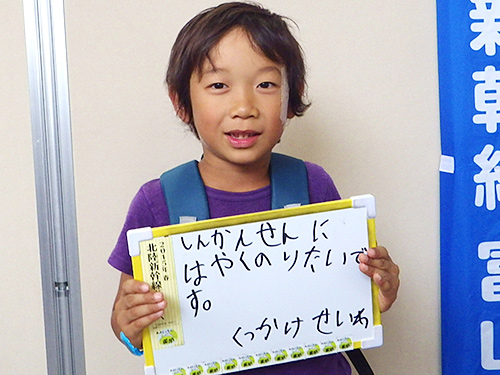 しんかんせんに
はやくのりたいで
す。
くっかけ せいわ
2015年春
北陸新幹線
新幹線 富山